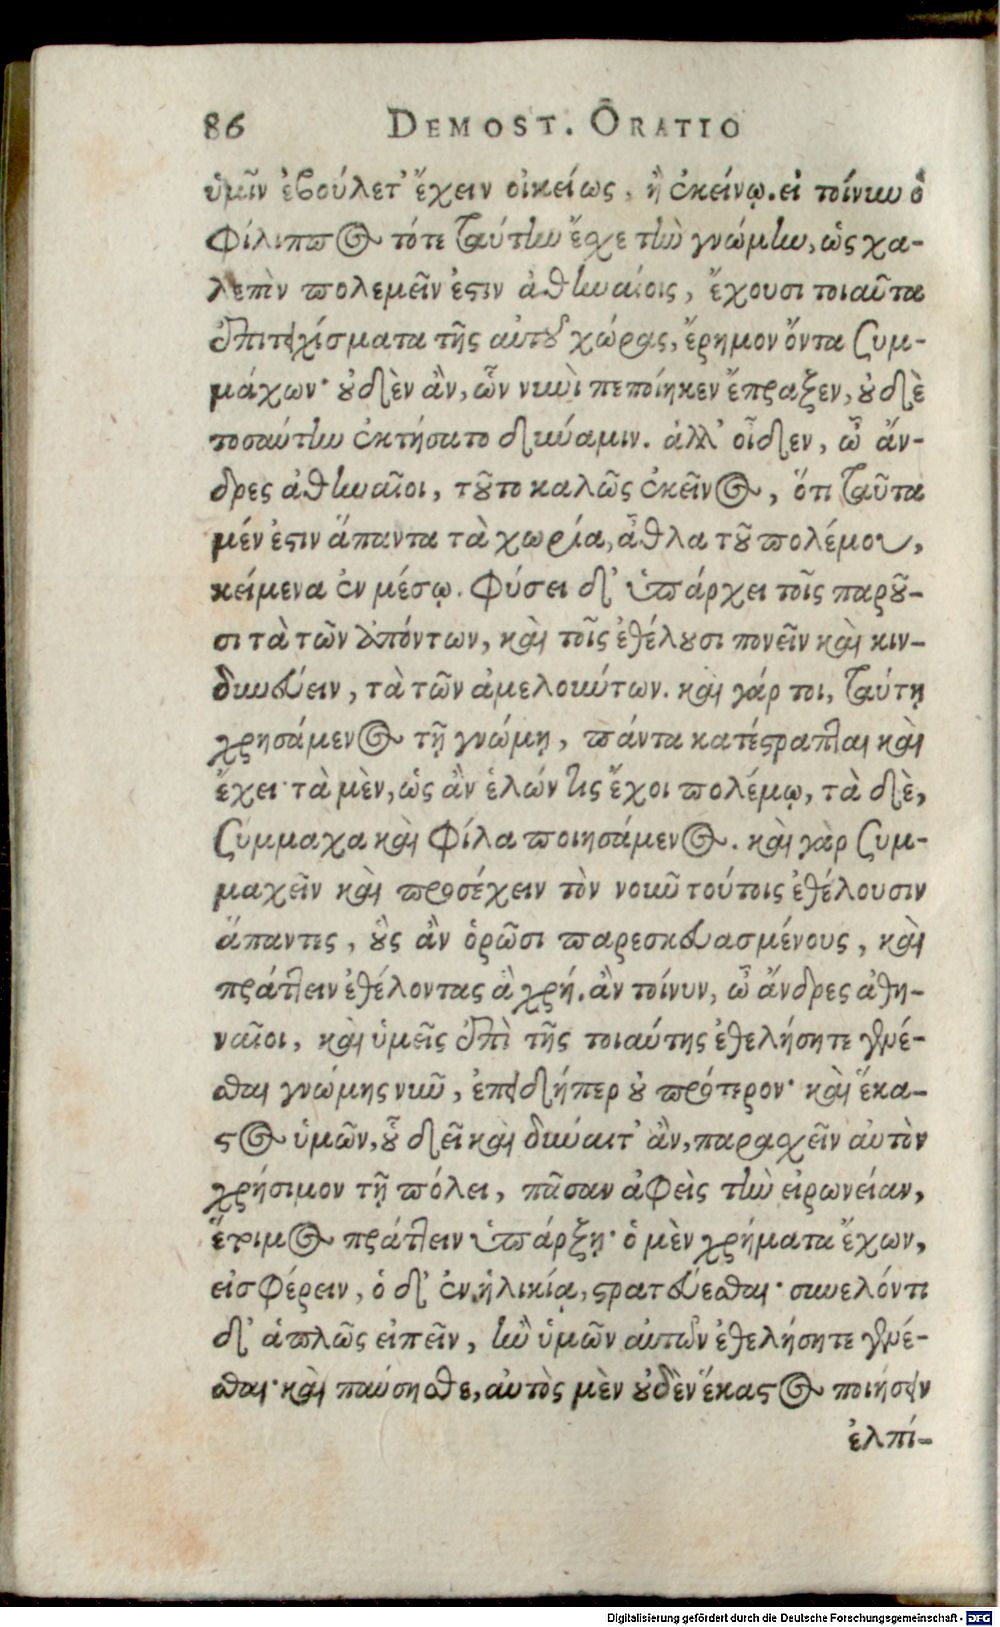 86 DEMOST. ORATIO
ὑμῖν ἐβούλετ' ἔχειν οἰκείως, ἢ ἐκείνῳ. εἰ τοίνυν ὁ
Φίλιππος τότε ταύτην ἔσχε τὴν γνώμην, ὡς χα-
λεπὸν πολεμεῖν ἐστιν ἀθηναίοις, ἔχουσι τοιαῦτα
ἐπιτειχίσματα τῆς αὐτοῦ χώρας, ἔρημον ὄντα συμ-
μάχων· οὐδὲν ἂν, ὧν νυνὶ πεποίηκεν ἔπραξεν, οὐδὲ
τοσαύτην ἐκτήσατο δύναμιν. ἀλλ' οἶδεν, ὦ ἄν-
δρες ἀθηναῖοι, τοῦτο καλῶς ἐκεῖνος, ὅτι ταῦτα
μέν ἐστιν ἅπαντα τὰ χωρία, ἆθλα τοῦ πολέμου,
κείμενα ἐν μέσῳ. Φύσει δ' ὑπάρχει τοῖς παροῦ-
σι τὰ τῶν ἀπόντων, καὶ τοῖς ἐθέλουσι πονεῖν καὶ κιν-
δυνεύειν, τὰ τῶν ἀμελούντων. καὶ γάρ τοι, ταύτῃ
χρησάμενος τῇ γνώμῃ, πάντα κατέστραπται καὶ
ἔχει· τὰ μὲν, ὡς ἂν ἑλών τις ἔχοι πολέμῳ, τὰ δὲ,
σύμμαχα καὶ φίλα ποιησάμενος. καὶ γὰρ συμ-
μαχεῖν καὶ προσέχειν τὸν νοῦν τούτοις ἐθέλουσιν
ἅπαντες, οὓς ἂν ὁρῶσι παρεσκευασμένους, καὶ
πράττειν ἐθέλοντας ἃ χρή. ἂν τοίνυν, ὦ ἄνδρες ἀθη-
ναῖοι, καὶ ὑμεῖς ἐπὶ τῆς τοιαύτης ἐθελήσητε γενέ-
σθαι γνώμης νῦν, ἐπειδήπερ οὐ πρότερον· καὶ ἕκα-
στος ὑμῶν, οὗ δεῖ καὶ δύναιτ' ἂν, παρασχεῖν αὑτὸν
χρήσιμον τῇ πόλει, πᾶσαν ἀφεὶς τὴν εἰρωνείαν,
ἕτοιμος πράττειν ὑπάρξῃ· ὁ μὲν χρήματα ἔχων,
εἰσφέρειν, ὁ δ' ἐν ἡλικίᾳ, στρατεύεσθαι· συνελόντι
δ' ἁπλῶς εἰπεῖν, ἢν ὑμῶν αὐτῶν ἐθελήσητε γενέ-
σθαι· καὶ παύσησθε, αὐτὸς μὲν οὐδὲν ἕκαστος ποιήσειν
ἐλπί-
Digitalisierung gefördert durch die Deutsche Forschungsgemeinschaft - DFG